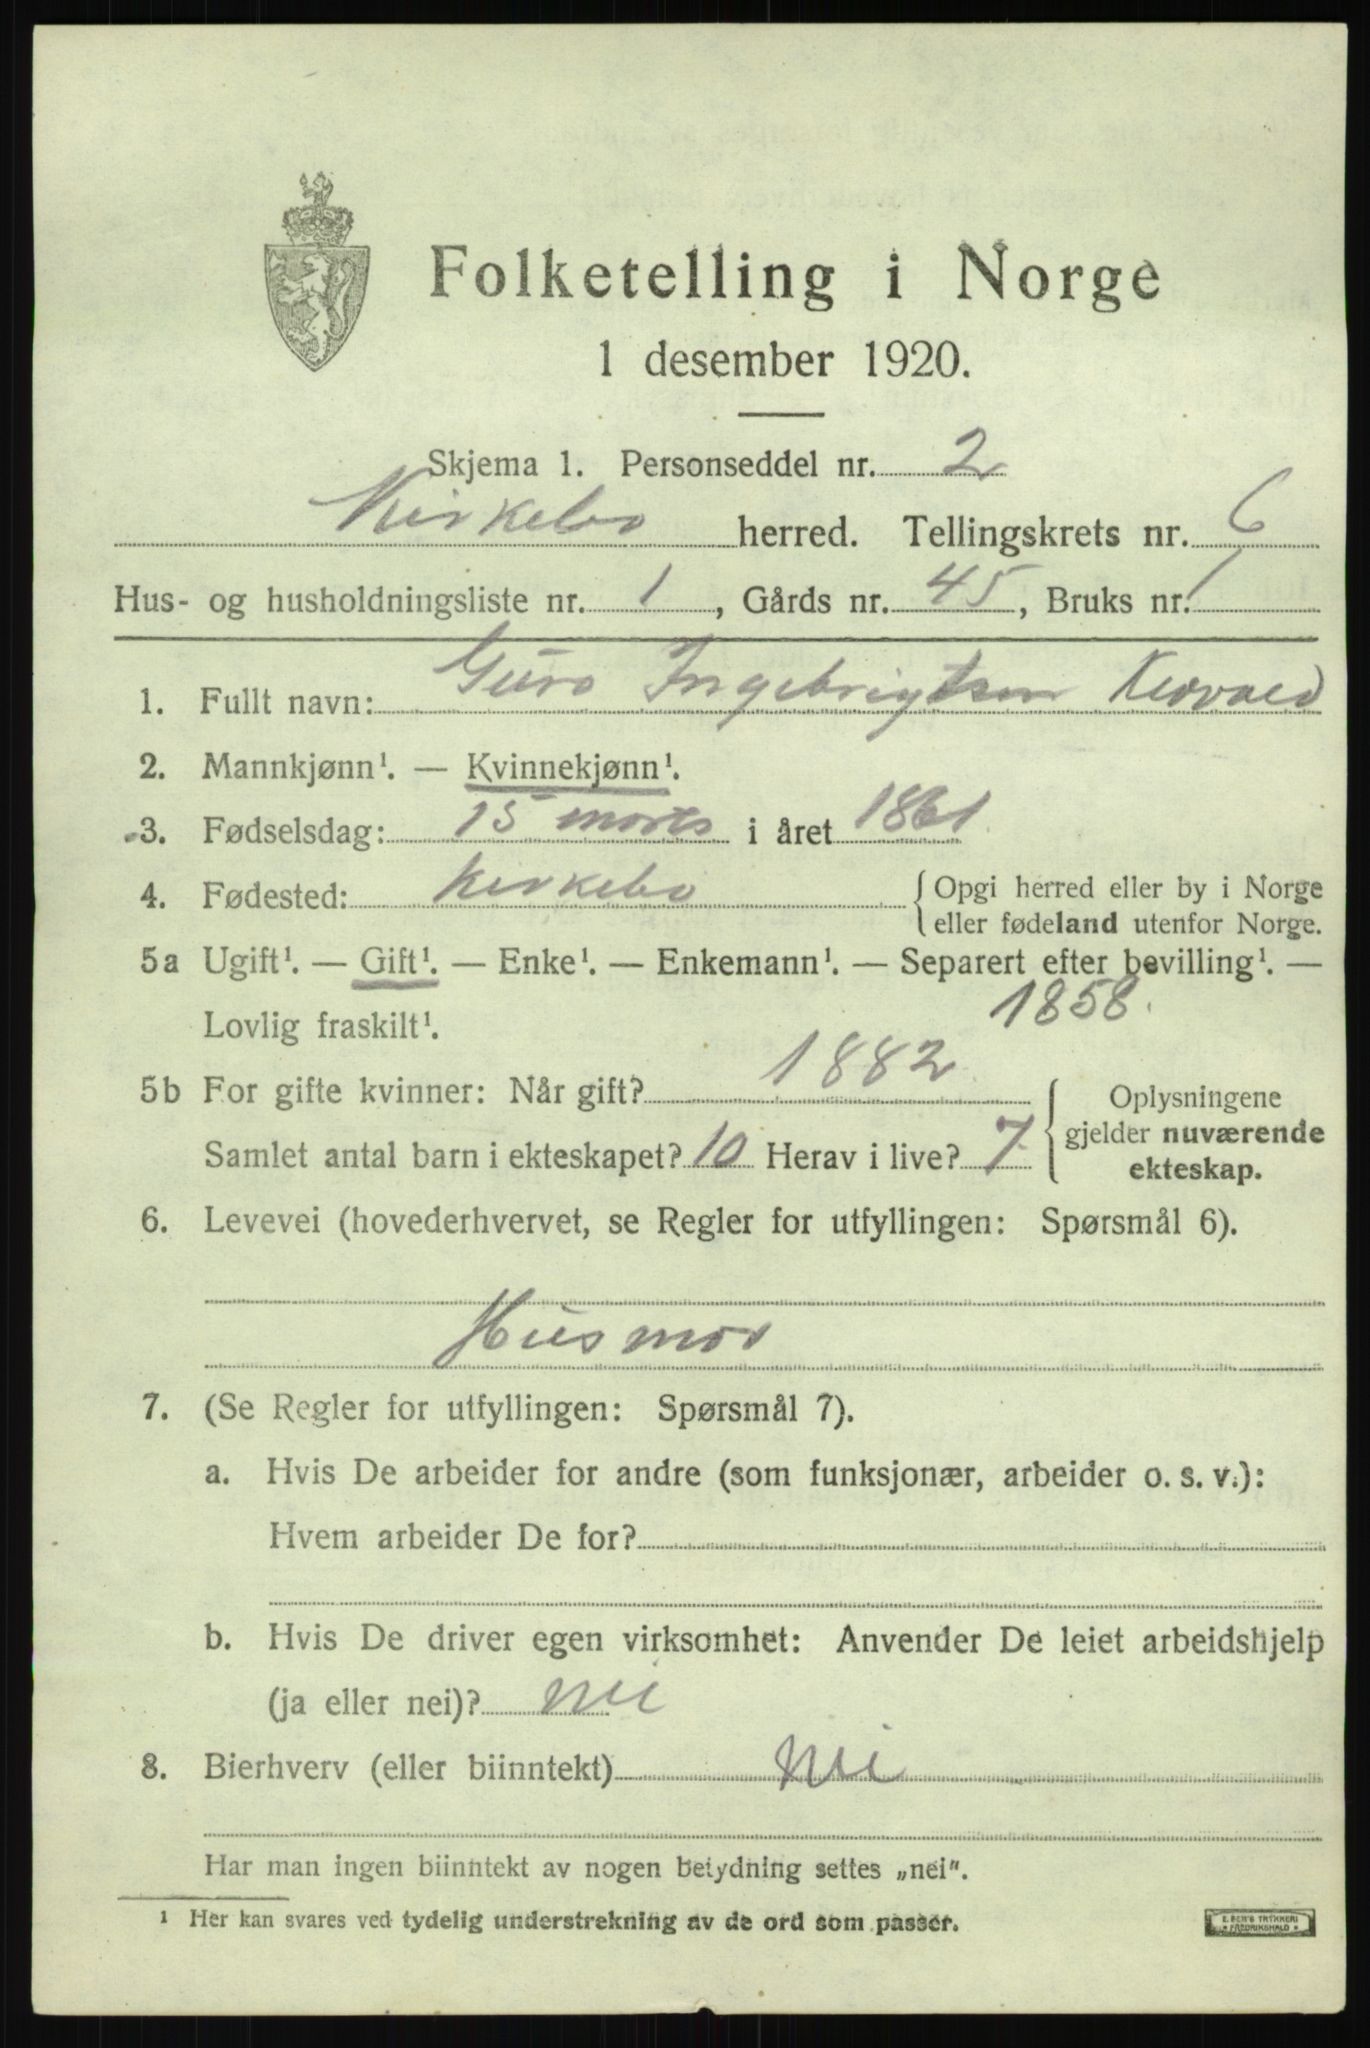 Folketelling i Norge
1 desember 1920.
Skjema 1. Personseddel nr. 2
Kirkebø herred. Tellingskrets nr. 6
Hus- og husholdningsliste nr. 1, Gårds nr. 45, Bruks nr. 1
1. Fullt navn: Guro Ingebrigtsen
2. Mannkjønn¹. — Kvinnekjønn¹.
3. Fødselsdag: 15 marts i året 1861
4. Fødested: Kirkebø { Opgi herred eller by i Norge
eller fødeland utenfor Norge.
5a Ugift¹. — Gift¹. — Enke¹. — Enkemann¹. — Separert efter bevilling¹. —
1858.
Lovlig fraskilt¹.
5b For gifte kvinner: Når gift? 1882 { Oplysningene
gjelder nuværende
Samlet antal barn i ekteskapet? 10 Herav i live? 7
ekteskap.
6. Levevei (hovederhvervet, se Regler for utfyllingen: Spørsmål 6).
Husmor
7. (Se Regler for utfyllingen: Spørsmål 7).
a. Hvis De arbeider for andre (som funksjonær, arbeider o. s. v.):
Hvem arbeider De for?
b. Hvis De driver egen virksomhet: Anvender De leiet arbeidshjelp
(ja eller nei)? nei
8. Bierhverv (eller biinntekt) nei
Har man ingen biinntekt av nogen betydning settes „nei".
¹ Her kan svares ved tydelig understrekning av de ord som passer.